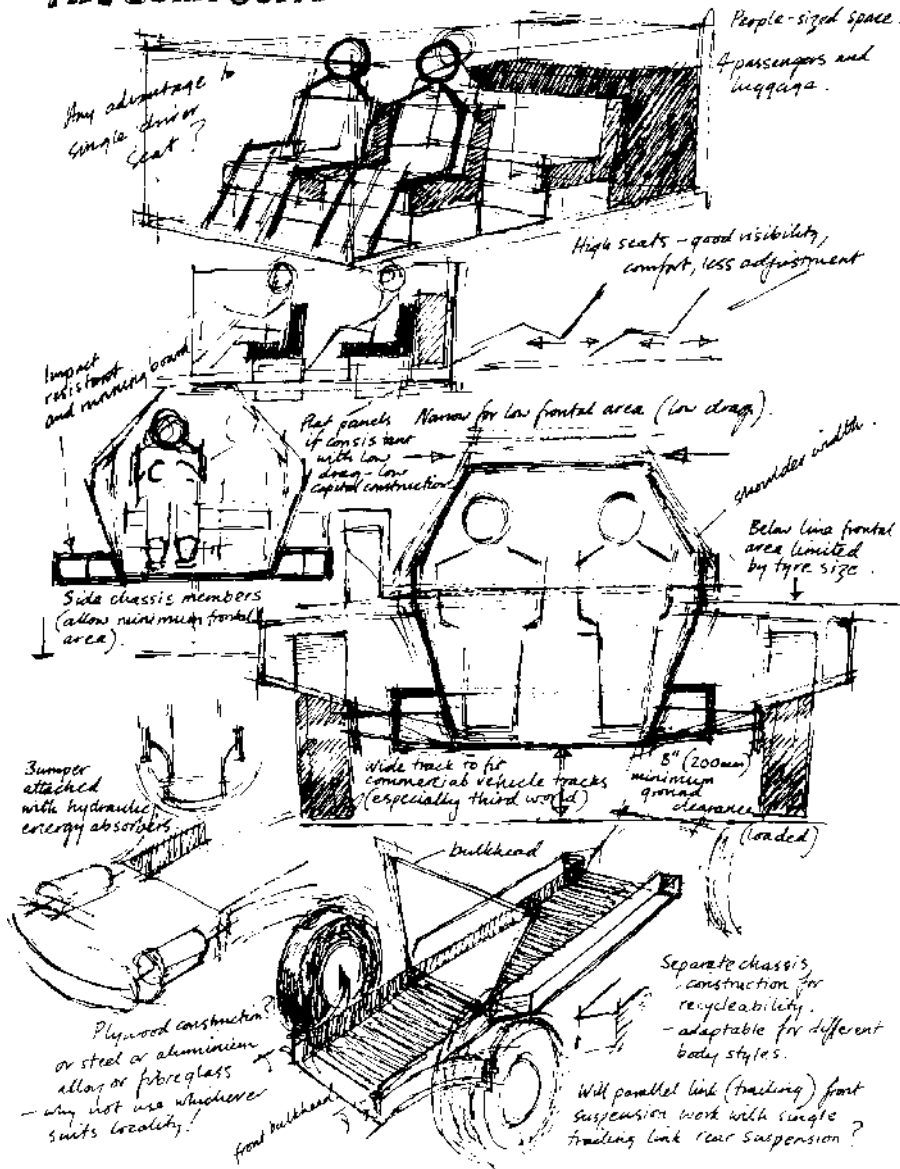 People-sized space.
4 passengers and
luggage.
Any advantage to
single driver
seat?
High seats - good visibility,
comfort, less adjustment
Impact
resistant
and running board
Flat panels
if consistant
with low
drag - low
capital construction
Narrow for low frontal area (low drag).
shoulder width.
Below line frontal
area limited
by tyre size.
Side chassis members
(allow minimum frontal
area).
Bumper
attached
with hydraulic
energy absorbers
Wide track to fit
commercial vehicle tracks
(especially third world)
8" (200mm)
minimum
ground
clearance
(loaded)
bulkhead
Plywood construction?
or steel or aluminium
alloy or fibreglass
- why not use whichever
suits locality!
front bulkhead
Separate chassis
construction for
recycleability.
- adaptable for different
body styles.
Will parallel link (trailing) front
suspension work with single
trailing link rear suspension?